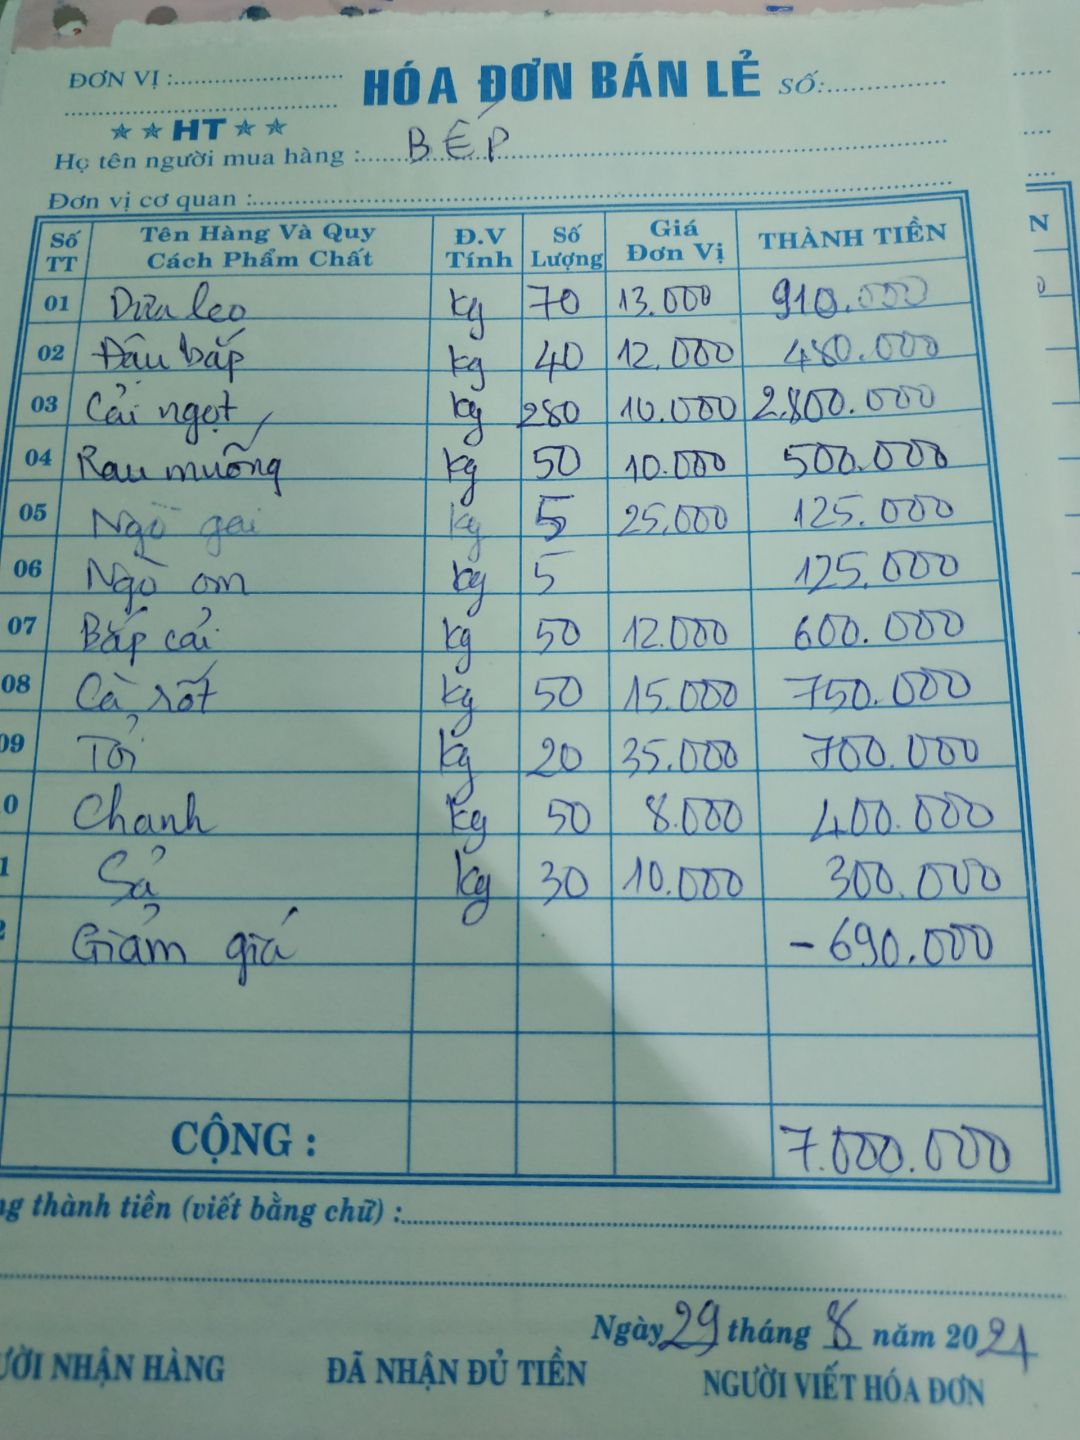 ĐƠN VỊ :
HÓA ĐƠN BÁN LẺ SỐ:
★ ★ HT ★ ★
Họ tên người mua hàng : BẾP
Đơn vị cơ quan :
Số TT Tên Hàng Và Quy Cách Phẩm Chất Đ.V Tính Số Lượng Giá Đơn Vị THÀNH TIỀN
01 Dưa leo kg 70 13.000 910.000
02 Đậu bắp kg 40 12.000 480.000
03 Cải ngọt kg 280 10.000 2.800.000
04 Rau muống kg 50 10.000 500.000
05 Ngò gai kg 5 25.000 125.000
06 Ngò om kg 5 125.000
07 Bắp cải kg 50 12.000 600.000
08 Cà rốt kg 50 15.000 750.000
09 Tỏi kg 20 35.000 700.000
0 Chanh kg 50 8.000 400.000
1 Sả kg 30 10.000 300.000
2 Giảm giá -690.000
CỘNG : 7.000.000
ng thành tiền (viết bằng chữ) :
Ngày 29 tháng 8 năm 2021
ƯỜI NHẬN HÀNG ĐÃ NHẬN ĐỦ TIỀN NGƯỜI VIẾT HÓA ĐƠN